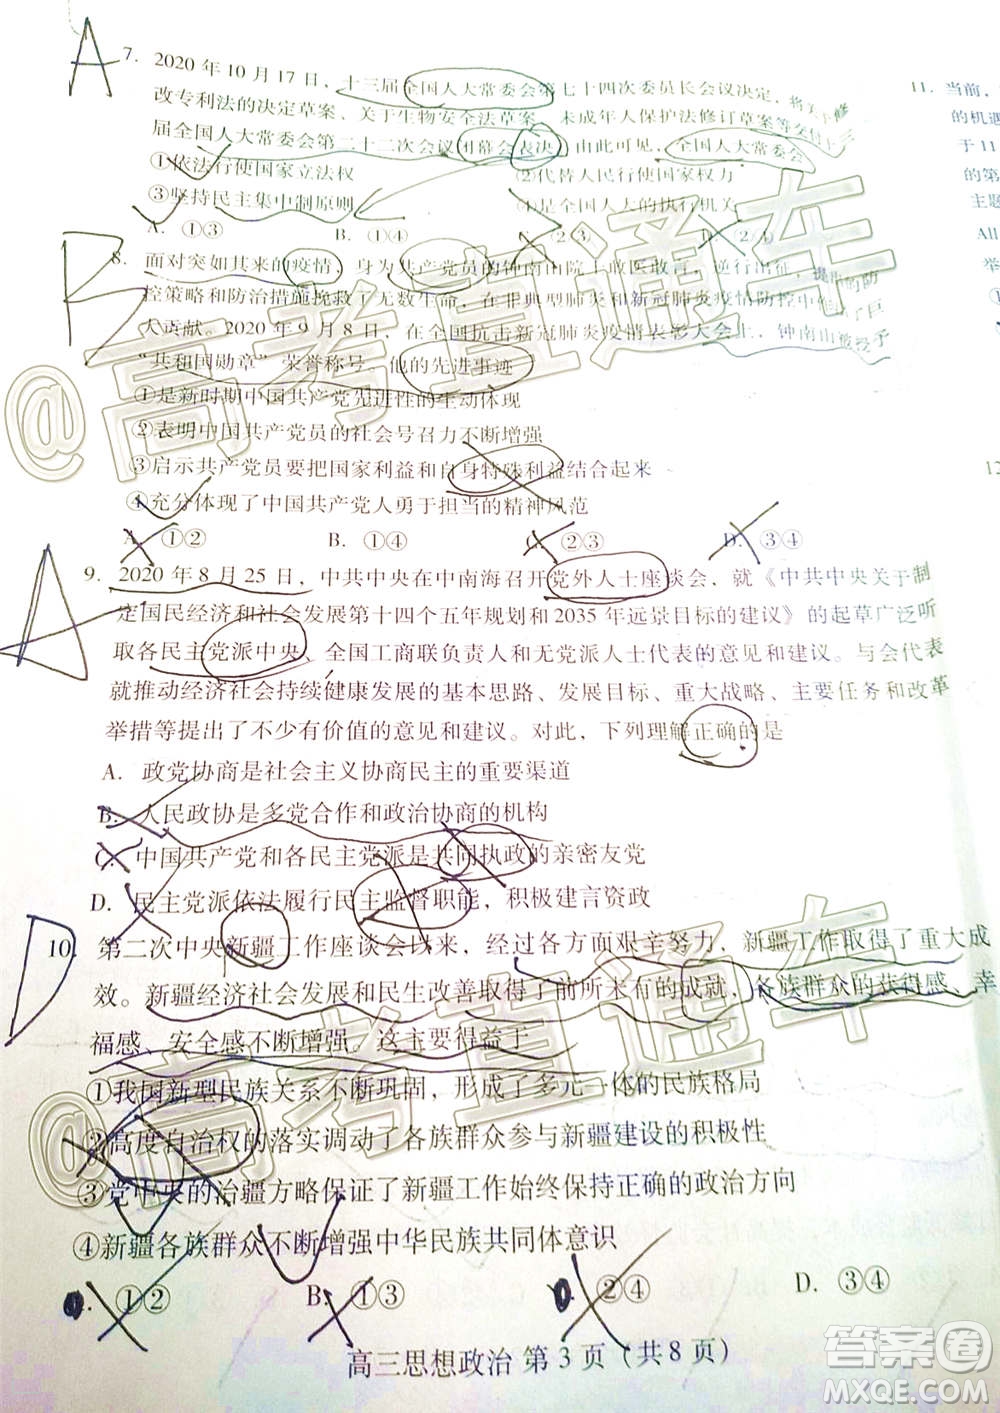 A
7. 2020年10月17日,十三届全国人大常委会第七十四次委员长会议决定,将关于修
改专利法的决定草案、关于生物安全法草案、未成年人保护法修订草案等交付十三
届全国人大常委会第二十二次会议闭幕会表决。由此可见,全国人大常委会
①依法行使国家立法权 ②代替人民行使国家权力
③坚持民主集中制原则 ④是全国人大的执行机关
A. ①③ B. ①④ C. ②③ D. ②④
B
8. 面对突如其来的疫情,身为共产党员的钟南山院士敢医敢言,逆行出征,提出的防
控策略和防治措施挽救了无数生命,在非典型肺炎和新冠肺炎疫情防控中作出了巨
大贡献。2020年9月8日,在全国抗击新冠肺炎疫情表彰大会上,钟南山被授予
“共和国勋章”荣誉称号。他的先进事迹
①是新时期中国共产党先进性的生动体现
②表明中国共产党员的社会号召力不断增强
③启示共产党员要把国家利益和自身特殊利益结合起来
④充分体现了中国共产党人勇于担当的精神风范
A. ①② B. ①④ C. ②③ D. ③④
A
9. 2020年8月25日,中共中央在中南海召开党外人士座谈会,就《中共中央关于制
定国民经济和社会发展第十四个五年规划和2035年远景目标的建议》的起草广泛听
取各民主党派中央、全国工商联负责人和无党派人士代表的意见和建议。与会代表
就推动经济社会持续健康发展的基本思路、发展目标、重大战略、主要任务和改革
举措等提出了不少有价值的意见和建议。对此,下列理解正确的是
A. 政党协商是社会主义协商民主的重要渠道
B. 人民政协是多党合作和政治协商的机构
C. 中国共产党和各民主党派是共同执政的亲密友党
D. 民主党派依法履行民主监督职能,积极建言资政
D
10. 第二次中央新疆工作座谈会以来,经过各方面艰辛努力,新疆工作取得了重大成
效。新疆经济社会发展和民生改善取得了前所未有的成就,各族群众的获得感、幸
福感、安全感不断增强。这主要得益于
①我国新型民族关系不断巩固,形成了多元一体的民族格局
②高度自治权的落实调动了各族群众参与新疆建设的积极性
③党中央的治疆方略保证了新疆工作始终保持正确的政治方向
④新疆各族群众不断增强中华民族共同体意识
A. ①② B. ①③ C. ②④ D. ③④
高三思想政治 第3页(共8页)
11. 当前,
的机遇
于11
的第
主题
All
举
①
12
@高考直通车
@高考直通车
答案圈
MXQE.COM